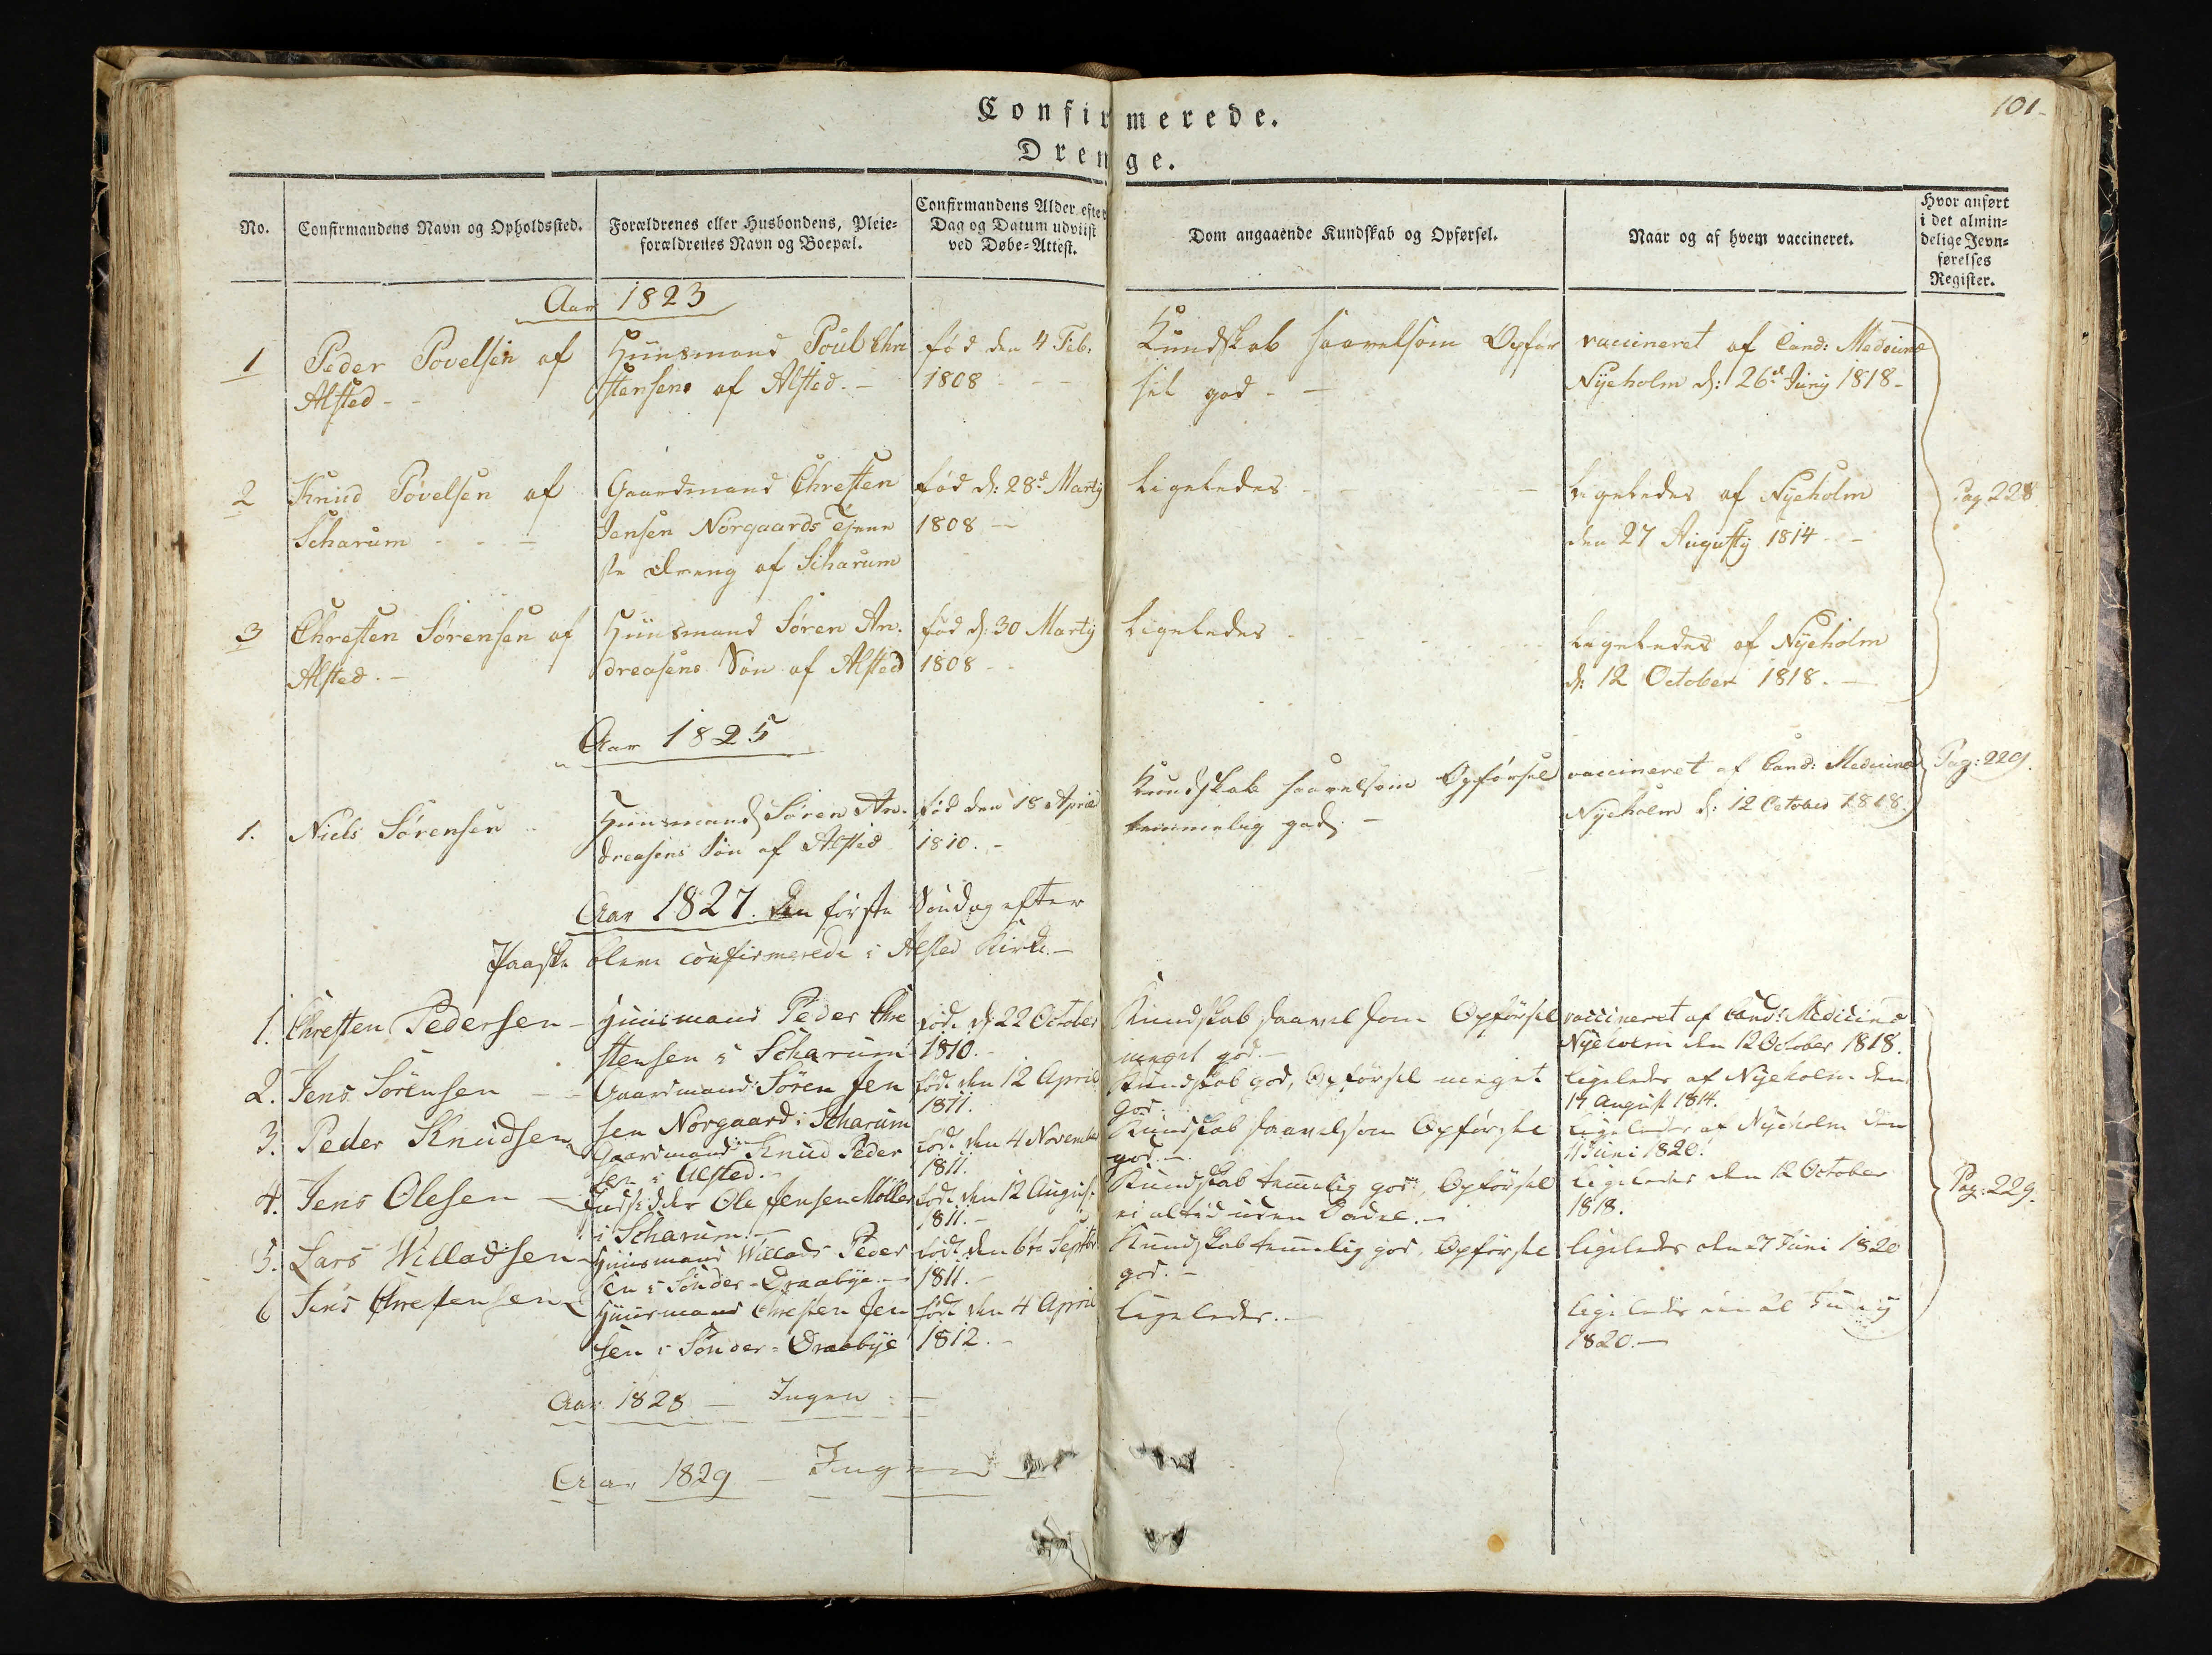 101
Confirmerede.
Drenge.
No.
Confirmandens Navn og Opholdssted.
Forældrenes eller Husbondens, Pleie-
forældrenes Navn og Boepæl.
Confirmandens Alder, efter
Dag og Datum udviist
ved Døbe-Attest.
Dom angaaende Kundskab og Opførsel.
Naar og af hvem vaccineret.
Hvor anført
i det almin-
delige Jevn-
førelses
Register.
Aar 1823
1
Peder Povelsen af
Alsted
Huusmand Poul Chre
stensens af Alsted.
fød den 4 Feb.
1808
Kundskab saavelsom Opfør
sel god
vaccineret af Cand: Medicinæ
Nyeholm d: 26d Juny 1818
2
Knud Povelsen af
Scharum
Gaardmand Chresten
Jensen Nørgaards Tjene
ste Dreng af Scharum
fød d: 28d Marty
1808
Ligeledes
Ligeledes af Nyeholm
den 27 Augusty 1814
Pag 228
3
Chresten Sørensen af
Alsted
Huusmand Søren An-
dreasens Søn af Alsted
fød d: 30 Marty
1808
Ligeledes
Ligeledes af Nyeholm
d: 12 October 1818.
Aar 1825
1.
Niels Sørensen
Huusmand Søren An-
dreasens Søn af Alsted
fød den 18 April
1810.
Kundskab saavelsom Opførsel
temmelig god
vaccineret af Cand: Medicinæ
Nyeholm d: 12 October 1818
Pag: 229.
Aar 1827. Den første Søndag efter
Paaske bleve confirmerede i Alsted Kirke.
1. Chresten Pedersen
Huusmand Peder Chre
stensen i Scharum
født d. 22 October
1810.
Kundskab saavelsom Opførsel
meget god.
vaccineret af Cand: Medicinæ
Nyeholm den 12 October 1818.
2. Jens Sörensen
Gaardmand Søren Jen
sen Nørgaard i Scharum
født den 12 April
1811.
Kundskab god, Opførsel meget
god.
ligeledes af Nyeholm den
17 August 1814.
3. Peder Knudsen
Gaardmand Knud Peder
sen i Alsted.
født den 4 November
1811.
Kundskab saavelsom Opførsel
god.
ligeledes af Nyeholm den
Juni 1820.
4. Jens Olesen
Indsidder Ole Jensen Møller
i Scharum.
født den 12 August
1811.
Kundskab temelig god, Opførsel
ei altid uden Dadel.
ligeledes den 12 October
1818.
Pag: 229.
5. Lars Willadsen
Huusmand Willads Peder
sen i Sønder-Draabye.
født den 6te Septbr
1811.
Kundskab temelig god, Opførsel
god.
ligeledes den 27 Juni 1820
6 Jens Chrestensen
Huusmand Chresten Jen
sen i Sönder-Draabye
født den 4 April
1812.
ligeledes.
ligeledes Juny
1820.
Aar 1828 – Ingen
Aar 1829 – Ingen